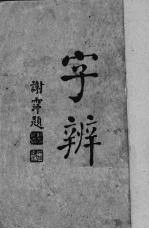 字辨
謝霖題